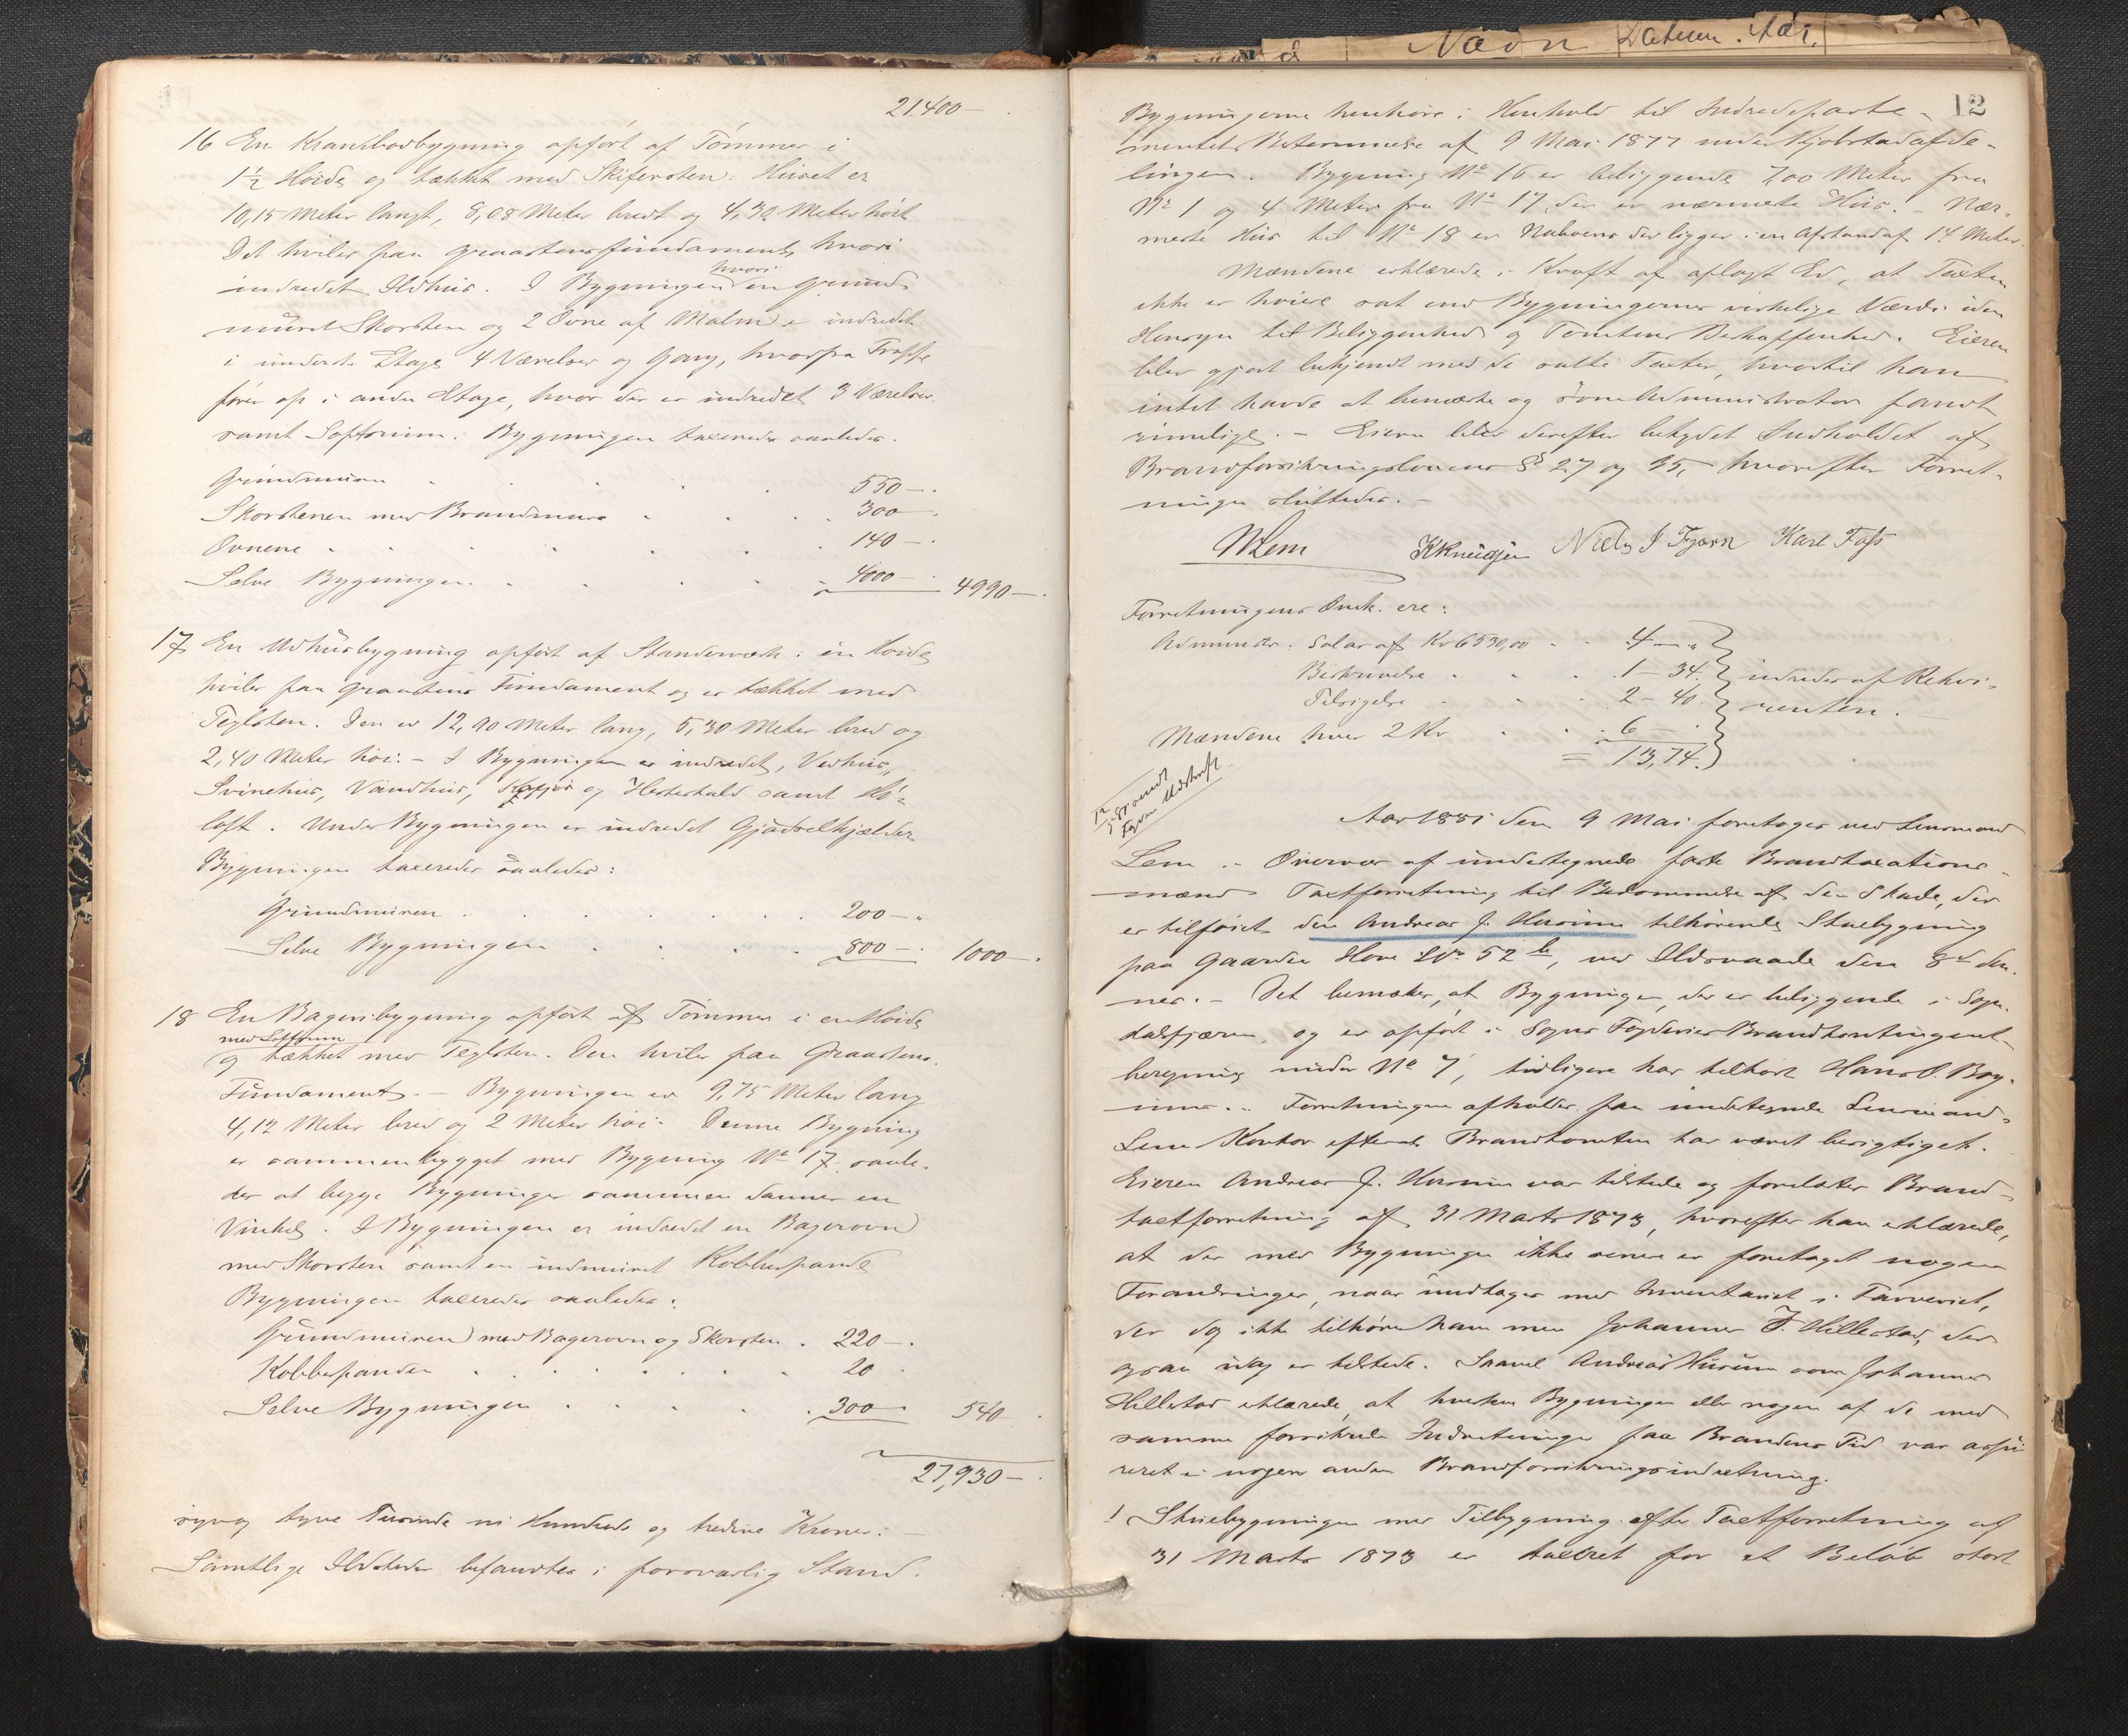 21400 —
16 En Krambodbygning opført af Tømmer i
1½ Høide og tækket med Skifersten. Huset er
10,15 Meter langt, 8,08 Meter bredt og 4,30 Meter høit.
Det hviler paa Graastensfundament, hvori
indredet Ildhus. I Bygningen hvori en Grund-
muret Skorsten og 2 Ovne af Malm er indredet
i underste Etage 4 Værelser og Gang, hvorfra Trappe
fører op i anden Etage, hvor der er indredet 3 Værelser
samt Loftsrum. Bygningen taxeredes saaledes.
Grundmuren 550 — .
Skorstenen med Brandmur 300 — .
Ovnene 140 — .
Selve Bygningen 4000 — . 4990 — .
17 En Udhusbygning opført af Standerværk i en Høide
hviler paa Graastens Fundament og er tækket med
Teglsten. Den er 12,90 Meter lang, 5,30 Meter bred og
2,40 Meter høi. – I Bygningen er indredet, Vedhus,
Svinehus, Vandhus, og Hestestald samt Hø-
loft. Under Bygningen er indredet Gjødselkjælder
Bygningen taxeredes saaledes:
Grundmuren 200 — .
Selve Bygningen 800 — . 1000 — .
18 En Bageribygning opført af Tømmer i en Høide
med Loftsrum
og tækket med Teglsten. Den hviler paa Graastens-
Fundament. – Bygningen er 9,75 Meter lang
4,12 Meter bred og 2 Meter høi. Denne Bygning
er sammenbygget med Bygning No 17 saale-
des at begge Bygninger sammen danner en
Vinkel. I Bygningen er indredet en Bagerovn
med Skorsten samt en indmuret Kobberpande
Bygningen taxeredes saaledes:
Grundmuren med Bagerovn og Skorsten . 220 — .
Kobberpanden 20
Selve Bygningen 300 — . 540
27,930 — .
syv og tyve Tusinde ni Hundrede og tredive Kroner. –
Samtlige Ildsteder befandtes i forsvarlig Stand.
12
Bygningerne henhøre i Henhold til Indredeparte-
mentets Bestemmelse af 9 Mai 1877 under Kjøbstadafde-
lingen. Bygning No 16 er beliggende 7,00 Meter fra
No 1 og 4 Meter fra No 17, der er nærmeste Hus. – Nær-
meste Hus til No 18 er Naboens der ligger i en Afstand af 14 Meter.
Mændene erklærede i Kraft af aflagt Ed, at Taxten
ikke er høiere sat end Bygningernes virkelige Værdi uden
Hensyn til Beliggenhed og Tomtens Beskaffenhed. Eieren
blev gjort bekjendt med de satte Taxter, hvortil han
intet havde at bemærke og som Administrator fandt
rimelige. – Eieren blev derefter betydet Indholdet af
Brandforsikringslovens §§ 27 og 95, hvorefter Forret-
ningen sluttedes. –
MLem KKnudsen Niels J Fjærn Karl Foss
Forretningens Omk. ere:
Administr. Salar af Kr 6530,00 4 — "
Beskrivelse 1 – 34.
Tilsigelse 2 – 40.
Mændene hver 2 Kr 6 –
= 13,74.
indredes af Rekvi-
renten. –
Udskrift
Aar 1881 den 9 Mai foretoges ved Lensmand
Lem i Overvær af undertegnede faste Brandtaxations-
mænd Taxtforretning til Bedømmelse af den Skade, der
er tilføiet den Andreas J. Husum tilhørende Stuebygning
paa Gaarden Hove LNo 52 b, ved Ildsvaade den 8de den-
nes. – Det bemærkes, at Bygningen, der er beliggende i Sogn-
dalsfjæren, og er opført i Sogns Fogderies Brandkontingent-
beregning under No 7, tidligere har tilhørt Hans O. Bøy-
um. – Forretningen afholdes paa undertegnede Lensmand
Lems Kontor efterat Brandtomten har været besigtiget.
Eieren Andreas J. Husum var tilstede og forelagte Brand-
taxtforretning af 31 Marts 1873, hvorefter han erklærede,
at der med Bygningen ikke senere er foretaget nogen
Forandringer, naar undtages med Inventariet i Farveriet,
der dog ikke tilhører ham men Johannes J. Hillestad, der
ogsaa idag er tilstede. Saavel Andreas Husum som Johannes
Hillestad erklærede, at hverken Bygningen eller nogen af de med
samme forsikrede Indretninger paa Brandens Tid var assu-
reret i nogen anden Brandforsikringsindretning.
1 Stuebygningen med Tilbygning efter Taxtforretning af
31 Marts 1873 er taxeret for et Beløb stort
Navn Datum. Aar.